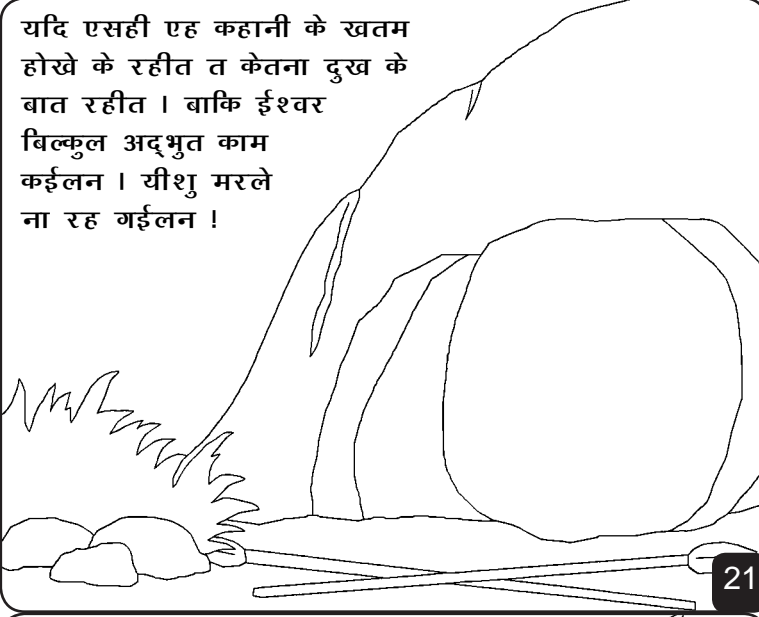 यदि एसही एह कहानी के खतम
होखे के रहीत त केतना दुख के
बात रहीत । बाकि ईश्वर
बिल्कुल अद्भुत काम
कईलन । यीशु मरले
ना रह गईलन !
21